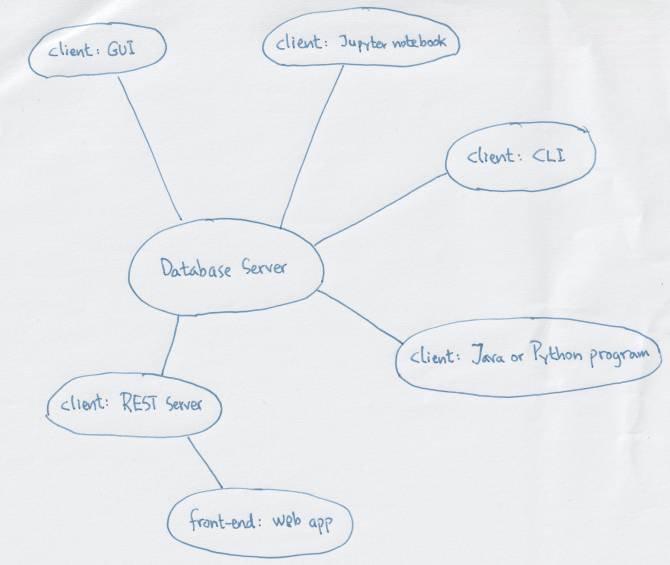 client: GUI
client: Jupyter notebook
client: CLI
Database Server
client: Java or Python program
client: REST Server
front-end: web app